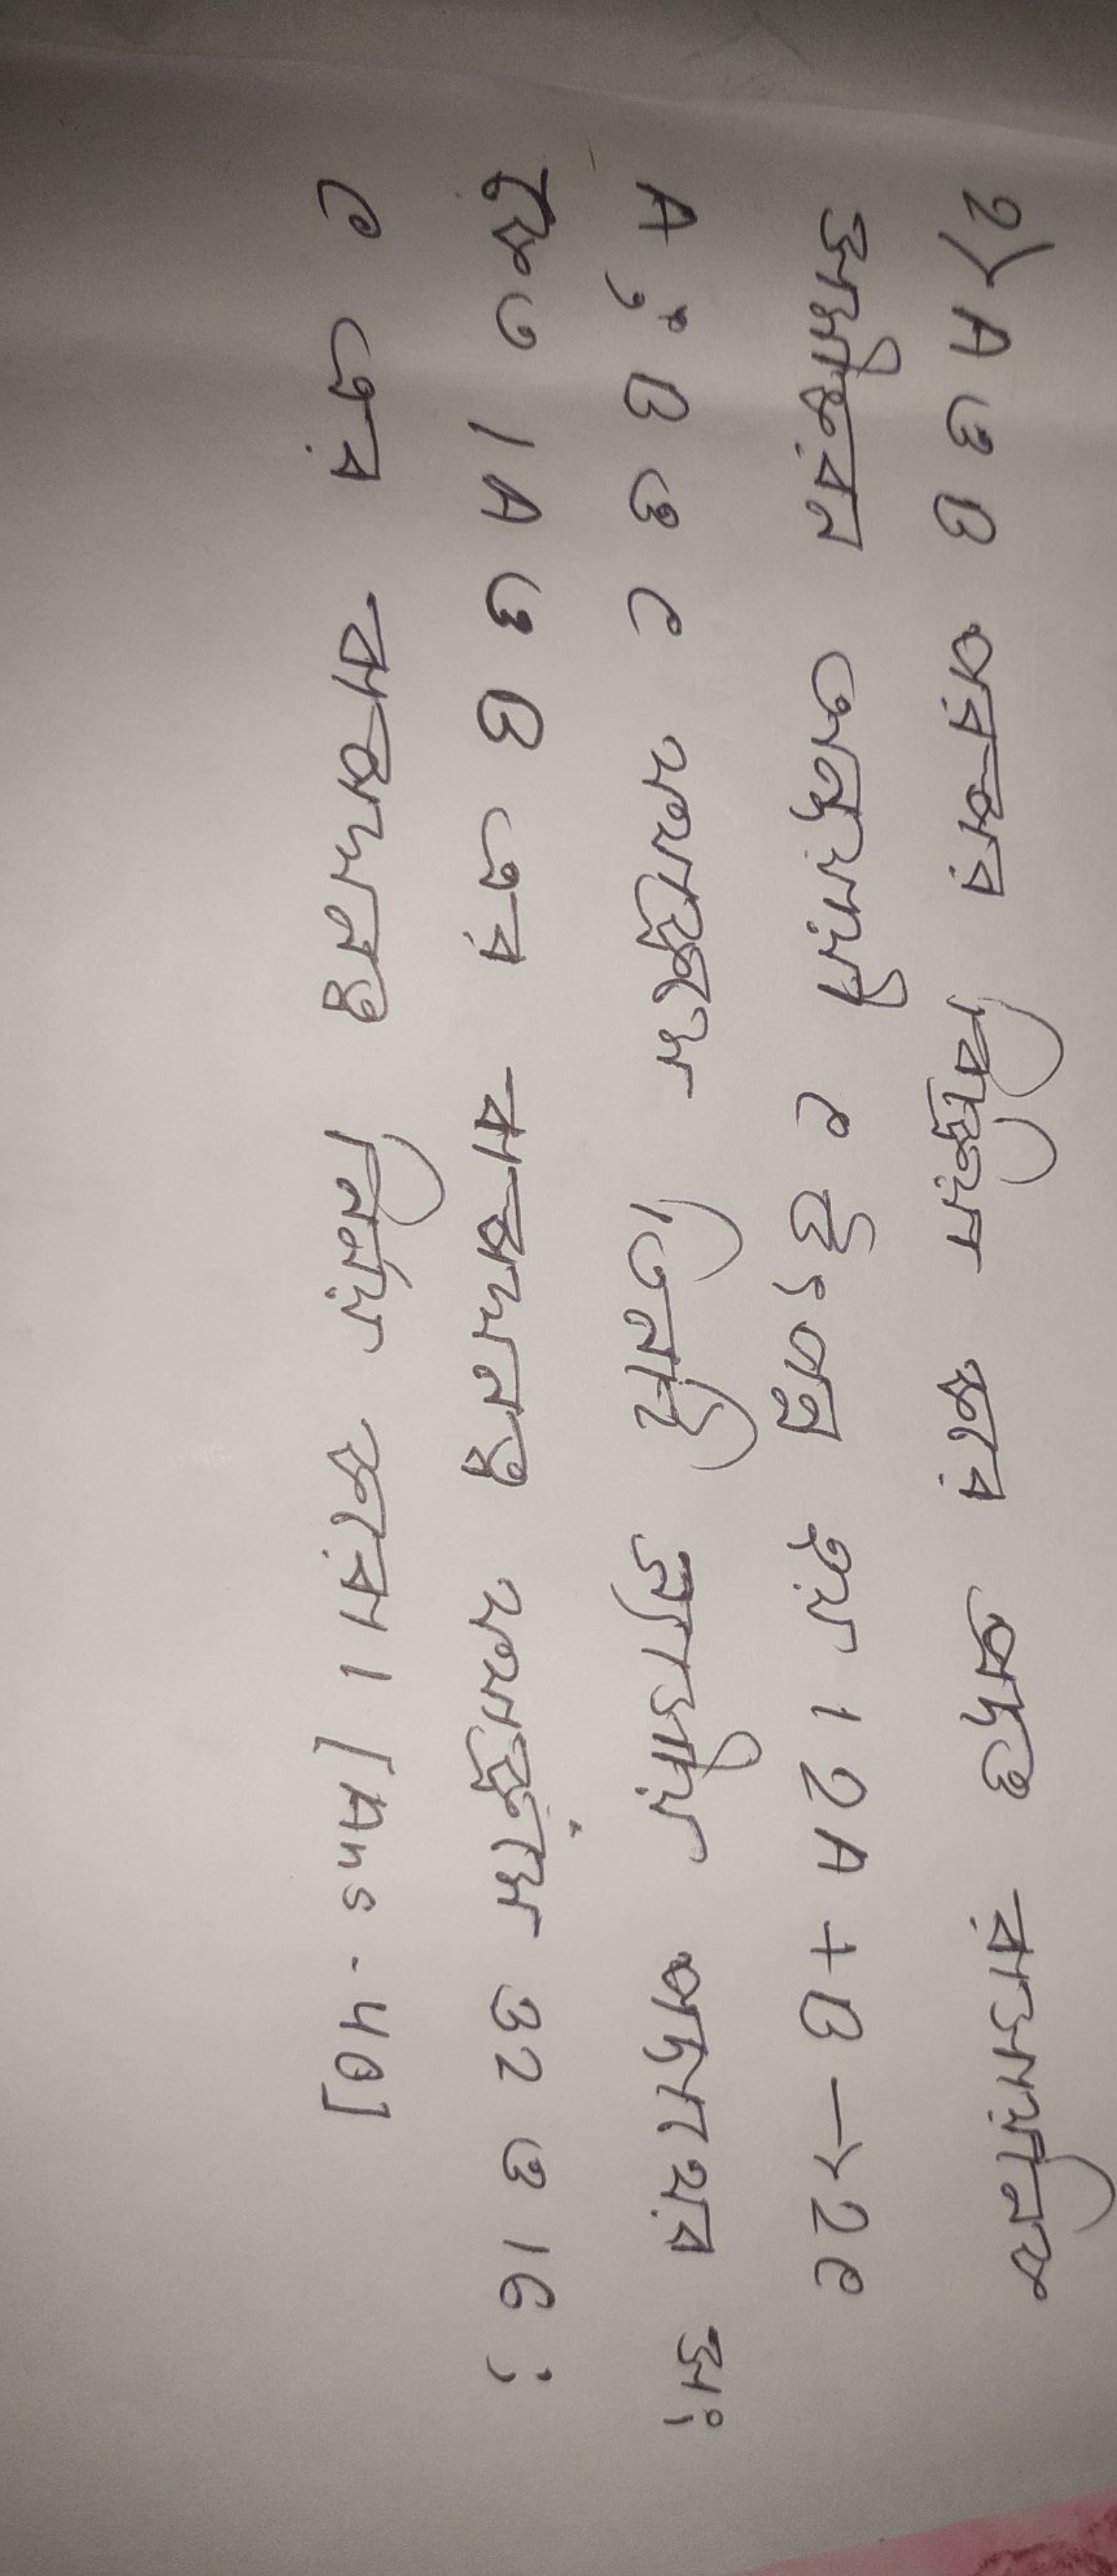 2> A ও B পরস্পর বিক্রিয়া করে প্রদত্ত রাসায়নিক
সমীকরন অনুযায়ী C উৎপন্ন হয়। 2A + B → 2C
A ; B ও C যথাক্রমে তিনটি গ্যাসীয় পদার্থের সং
কেত। A ও B এর বাষ্পঘনত্ব যথাক্রমে 32 ও 16 ;
C এর বাষ্পঘনত্ব নির্ণয় করো। [Ans - 40]